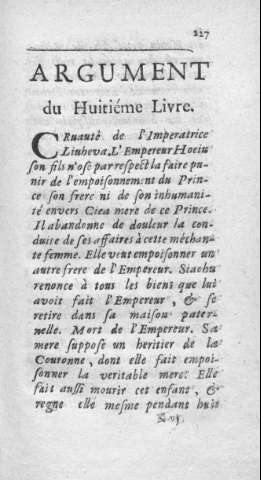 227
ARGUMENT
du Huitiéme Livre.
CRuauté de l'Imperatrice
Liuheva. L'Empereur Hoeiu
son fils n'ose par respect la faire pu-
nir de l'empoisonnement du Prin-
ce son frere ni de son inhumani-
té envers Ciea mere de ce Prince.
Il abandonne de douleur la con-
duite de ses affaires à cette méchan-
te femme. Elle veut empoisonner un
autre frere de l'Empereur. Siaohu
renonce à tous les biens que lui
avoit fait l'Empereur, & se
retire dans sa maison pater-
nelle. Mort de l'Empereur. Sa
mere suppose un heritier de la
Couronne, dont elle fait empoi-
sonner la veritable mere: Elle
fait aussi mourir cet enfant, &
regne elle mesme pendant huit